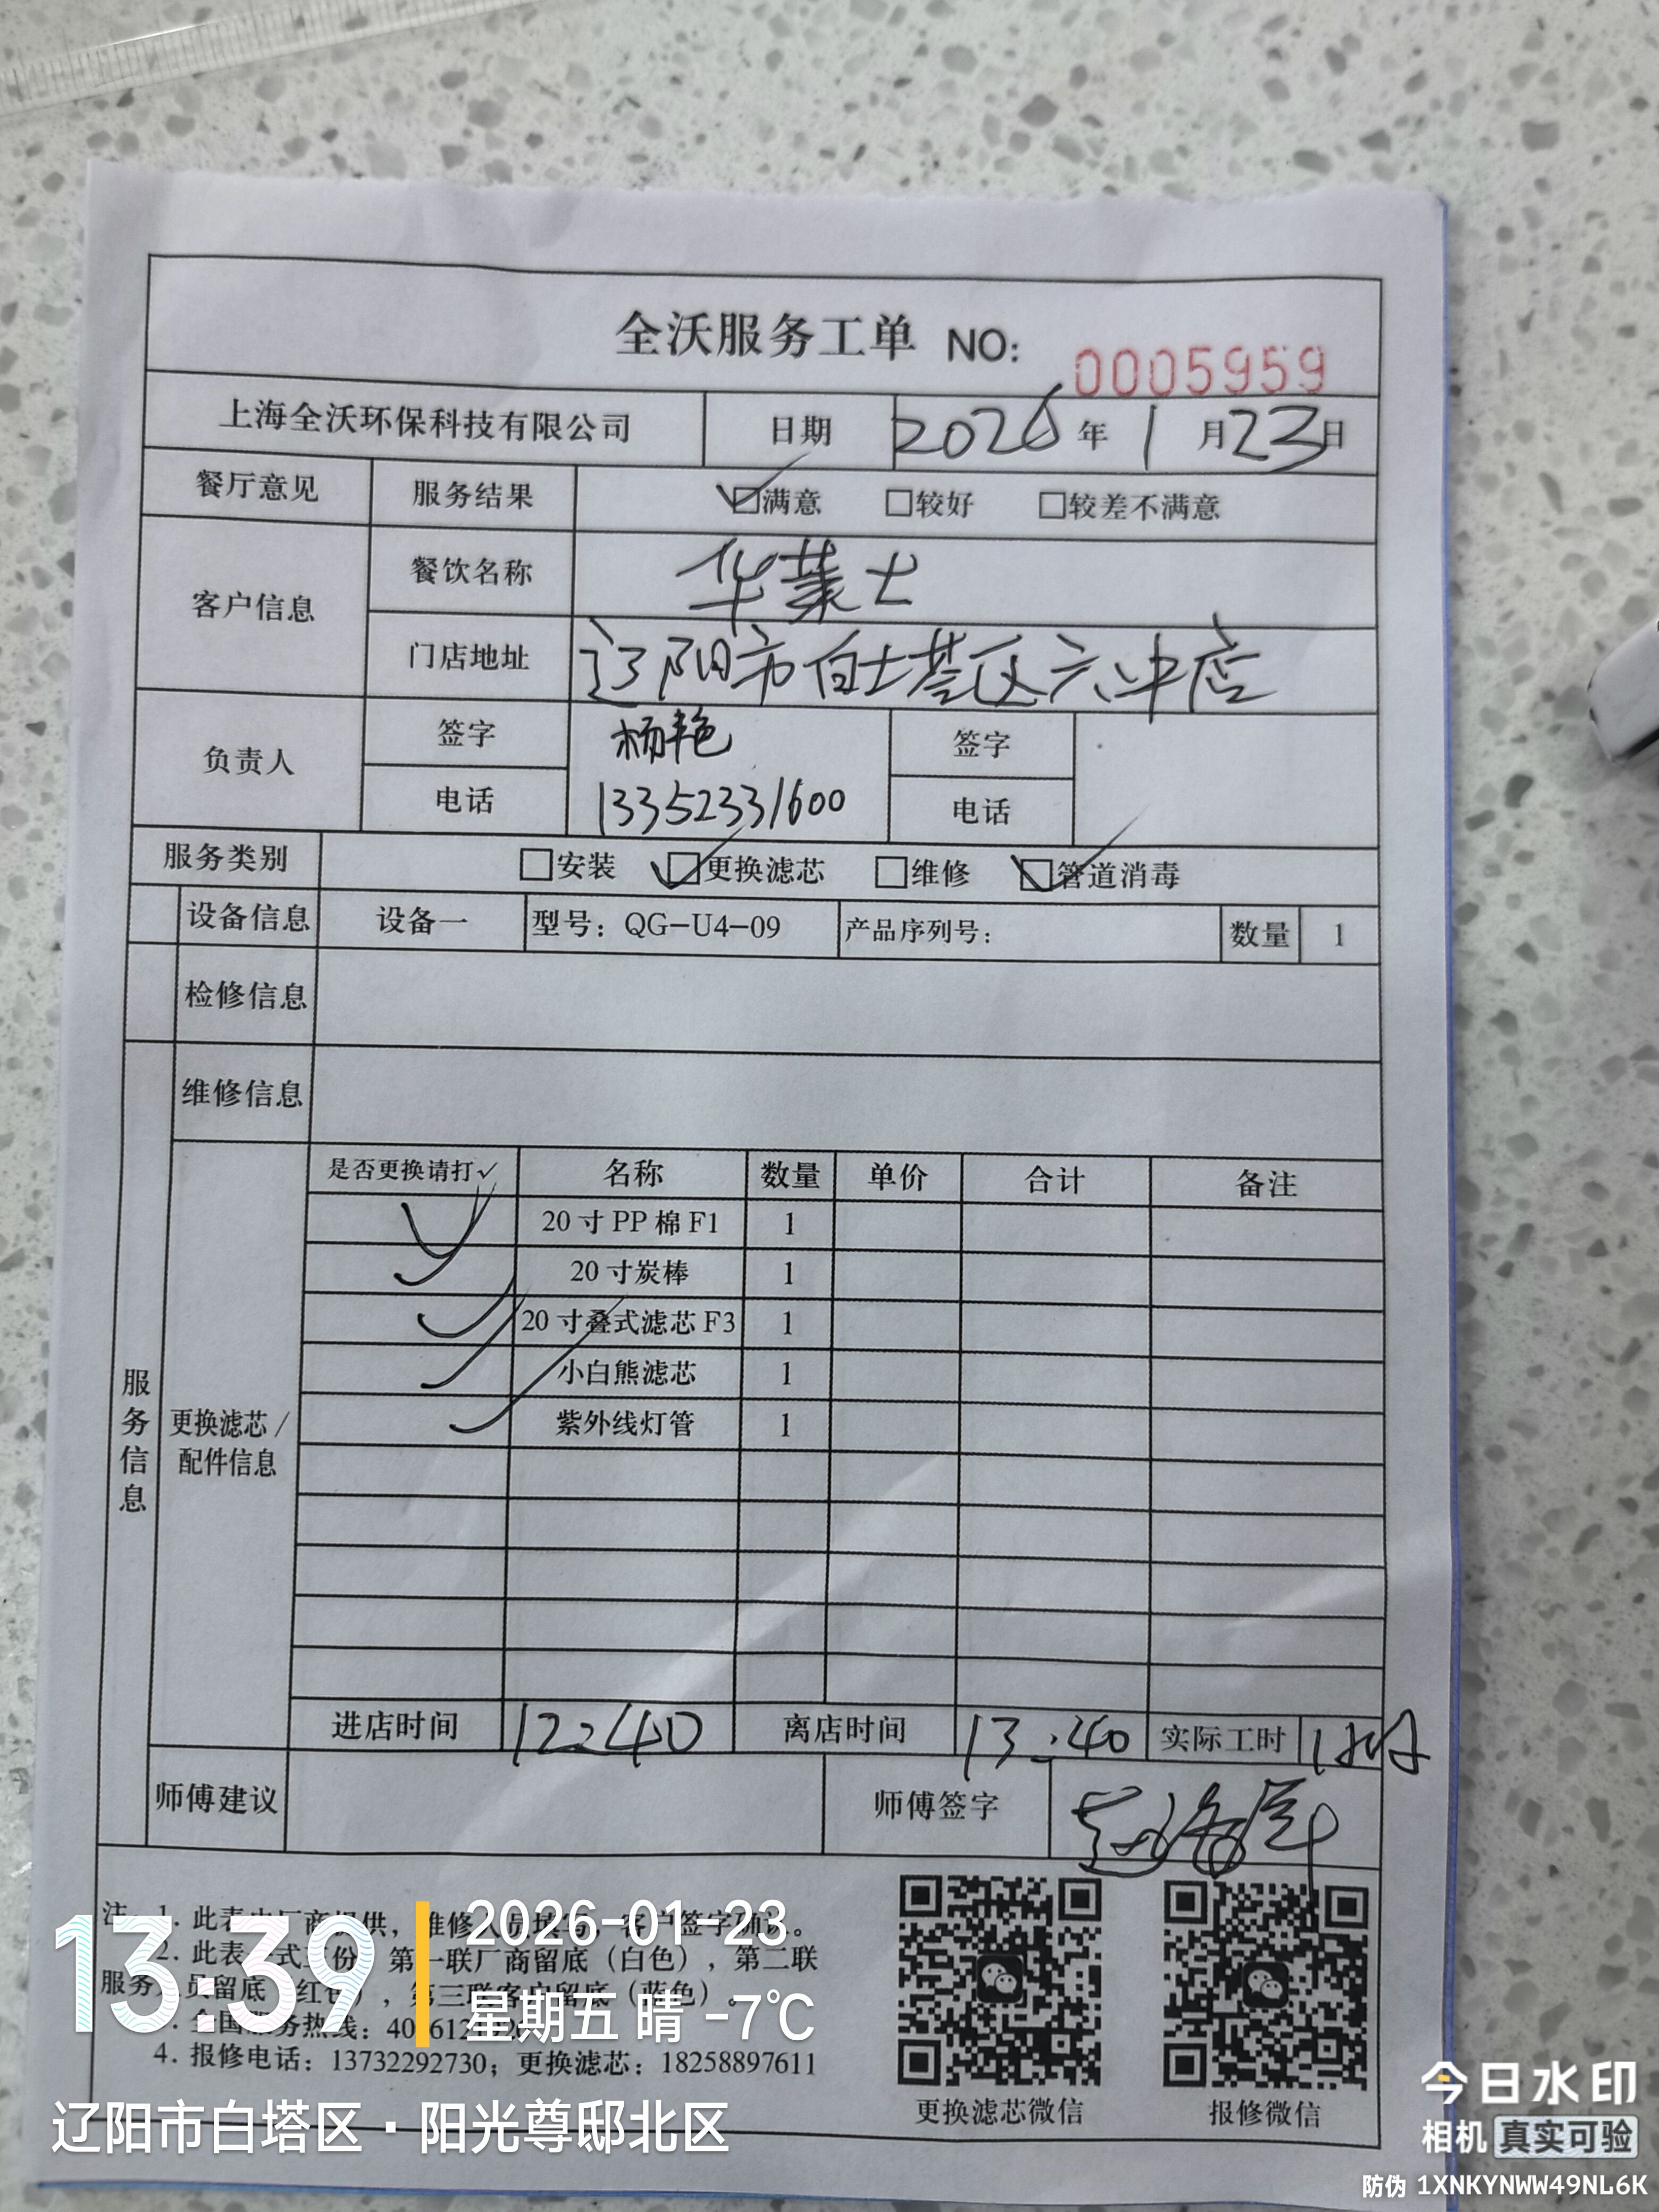 全沃服务工单 NO: 0005959
上海全沃环保科技有限公司 日期 2026年1月23日
餐厅意见 服务结果 ☑满意 □较好 □较差不满意
客户信息 餐饮名称 华莱士
门店地址 辽阳市白塔区六中店
负责人 签字 杨艳 签字
电话 13352331600 电话
服务类别 □安装 ☑更换滤芯 □维修 ☑管道消毒
设备信息 设备一 型号：QG-U4-09 产品序列号： 数量 1
检修信息
维修信息
服务信息
更换滤芯/配件信息
是否更换请打✓ 名称 数量 单价 合计 备注
✓ 20寸PP棉F1 1
✓ 20寸炭棒 1
✓ 20寸叠式滤芯F3 1
✓ 小白熊滤芯 1
✓ 紫外线灯管 1
进店时间 12:40 离店时间 13:40 实际工时
师傅建议 师傅签字
注：1. 此表由厂商提供，维修人员填写，客户签字确认。
2. 此表一式三份，第一联厂商留底（白色），第二联
服务人员留底（红色），第三联客户留底（蓝色）。
全国服务热线：
4. 报修电话：13732292730；更换滤芯：18258897611
更换滤芯微信 报修微信
13:39
2026-01-23
星期五 晴 -7℃
辽阳市白塔区·阳光尊邸北区
今日水印
相机 真实可验
防伪 1XNKYNWW49NL6K